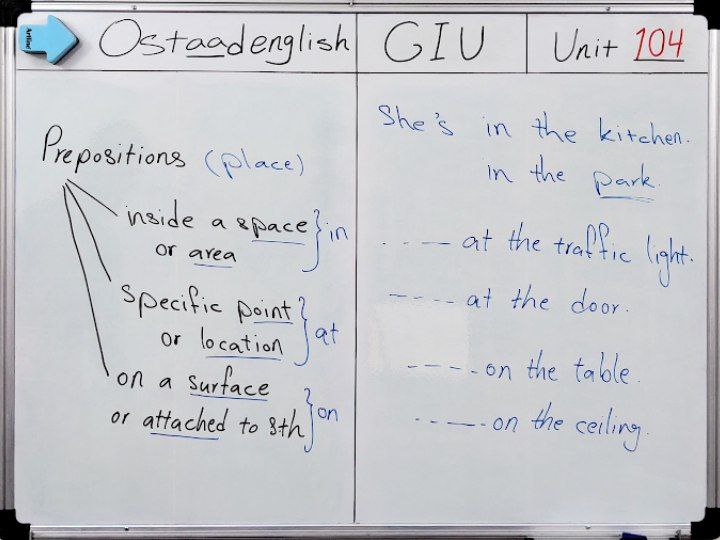 Artline
Ostaadenglish
GIU
Unit 104
Prepositions (place)
inside a space
or area
in
specific point
or location
at
on a surface
or attached to sth
on
She's in the kitchen.
in the park.
---- at the traffic light.
---- at the door.
----- on the table.
----- on the ceiling.